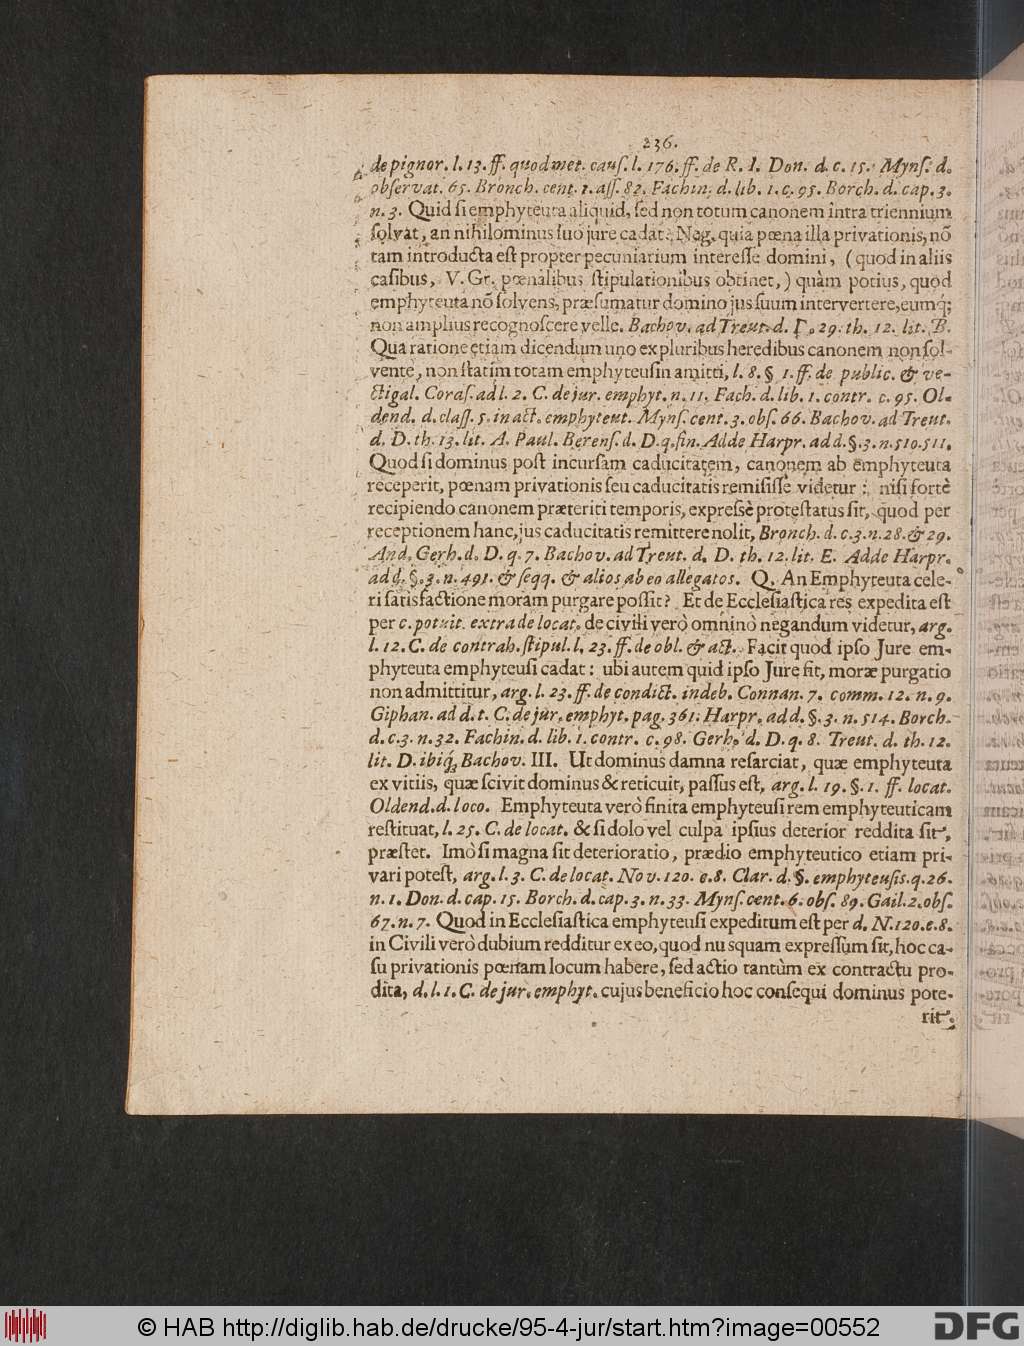 236.
de pignor. l. 13. ff. quod met. cauſ. l. 176. ff. de R. I. Don. d. c. 15. Mynſ. d.
obſervat. 65. Bronch. cent. 1. aſſ. 82. Fachin. d. lib. 1. c. 95. Borch. d. cap. 3.
n. 3. Quid ſi emphyteuta aliquid, ſed non totum canonem intra triennium
ſolvat, an nihilominus ſuo jure cadat? Neg. quia pœna illa privationis, nõ
tam introducta eſt propter pecuniarium intereſſe domini, (quod in aliis
caſibus, V. Gr. pœnalibus ſtipulationibus obtinet,) quàm potius, quod
emphyteuta nõ ſolvens, præſumatur domino jus ſuum intervertere, eumq́;
non amplius recognoſcere velle. Bachov. ad Treut. d. D. 29. th. 12. lit. B.
Qua ratione etiam dicendum uno ex pluribus heredibus canonem non ſol-
vente, non ſtatim totam emphyteuſin amitti, l. 8. § 1. ff. de public. & ve-
ctigal. Coraſ. ad l. 2. C. de jur. emphyt. n. 11. Fach. d. lib. 1. contr. c. 95. Ol-
dend. d. claſſ. 5. in act. emphyteut. Mynſ. cent. 3. obſ. 66. Bachov. ad Treut.
d. D. th. 13. lit. A. Paul. Berenſ. d. D. q. fin. Adde Harpr. ad d. §. 3. n. 510. 511.
Quod ſi dominus poſt incurſam caducitatem, canonem ab emphyteuta
receperit, pœnam privationis ſeu caducitatis remiſiſſe videtur: niſi fortè
recipiendo canonem præteriti temporis, expreſsè proteſtatus ſit, quod per
receptionem hanc, jus caducitatis remittere nolit, Bronch. d. c. 3. n. 28. & 29.
And. Gerh. d. D. q. 7. Bachov. ad Treut. d. D. th. 12. lit. E. Adde Harpr.
ad d. §. 3. n. 491. & ſeqq. & alios ab eo allegatos. Q. An Emphyteuta cele-
ri ſatisfactione moram purgare poſſit? Et de Ecclesiaſtica res expedita eſt
per c. potuit. extra de locat. de civili verò omninò negandum videtur, arg.
l. 12. C. de contrah. ſtipul. l. 23. ff. de obl. & act. Facit quod ipſo Jure em-
phyteuta emphyteuſi cadat: ubi autem quid ipſo Jure fit, moræ purgatio
non admittitur, arg. l. 23. ff. de condict. indeb. Connan. 7. comm. 12. n. 9.
Giphan. ad d. t. C. de jur. emphyt. pag. 361. Harpr. ad d. §. 3. n. 514. Borch.
d. c. 3. n. 32. Fachin. d. lib. 1. contr. c. 98. Gerh. d. D. q. 8. Treut. d. th. 12.
lit. D. ibiq́; Bachov. III. Ut dominus damna reſarciat, quæ emphyteuta
ex vitiis, quæ ſcivit dominus & reticuit, paſſus eſt, arg. l. 19. §. 1. ff. locat.
Oldend. d. loco. Emphyteuta verò finita emphyteuſi rem emphyteuticam
reſtituat, l. 25. C. de locat. & ſi dolo vel culpa ipſius deterior reddita ſit,
præſtet. Imò ſi magna ſit deterioratio, prædio emphyteutico etiam pri-
vari poteſt, arg. l. 3. C. de locat. Nov. 120. c. 8. Clar. d. §. emphyteuſis. q. 26.
n. 1. Don. d. cap. 15. Borch. d. cap. 3. n. 33. Mynſ. cent. 6. obſ. 89. Gail. 2. obſ.
67. n. 7. Quod in Eccleſiaſtica emphyteuſi expeditum eſt per d. N. 120. c. 8.
in Civili verò dubium redditur ex eo, quod nuſquam expreſſum ſit, hoc ca-
ſu privationis pœnam locum habere, ſed actio tantùm ex contractu pro-
dita, d. l. 1. C. de jur. emphyt. cujus beneficio hoc conſequi dominus pote-
rit.
© HAB http://diglib.hab.de/drucke/95-4-jur/start.htm?image=00552
DFG